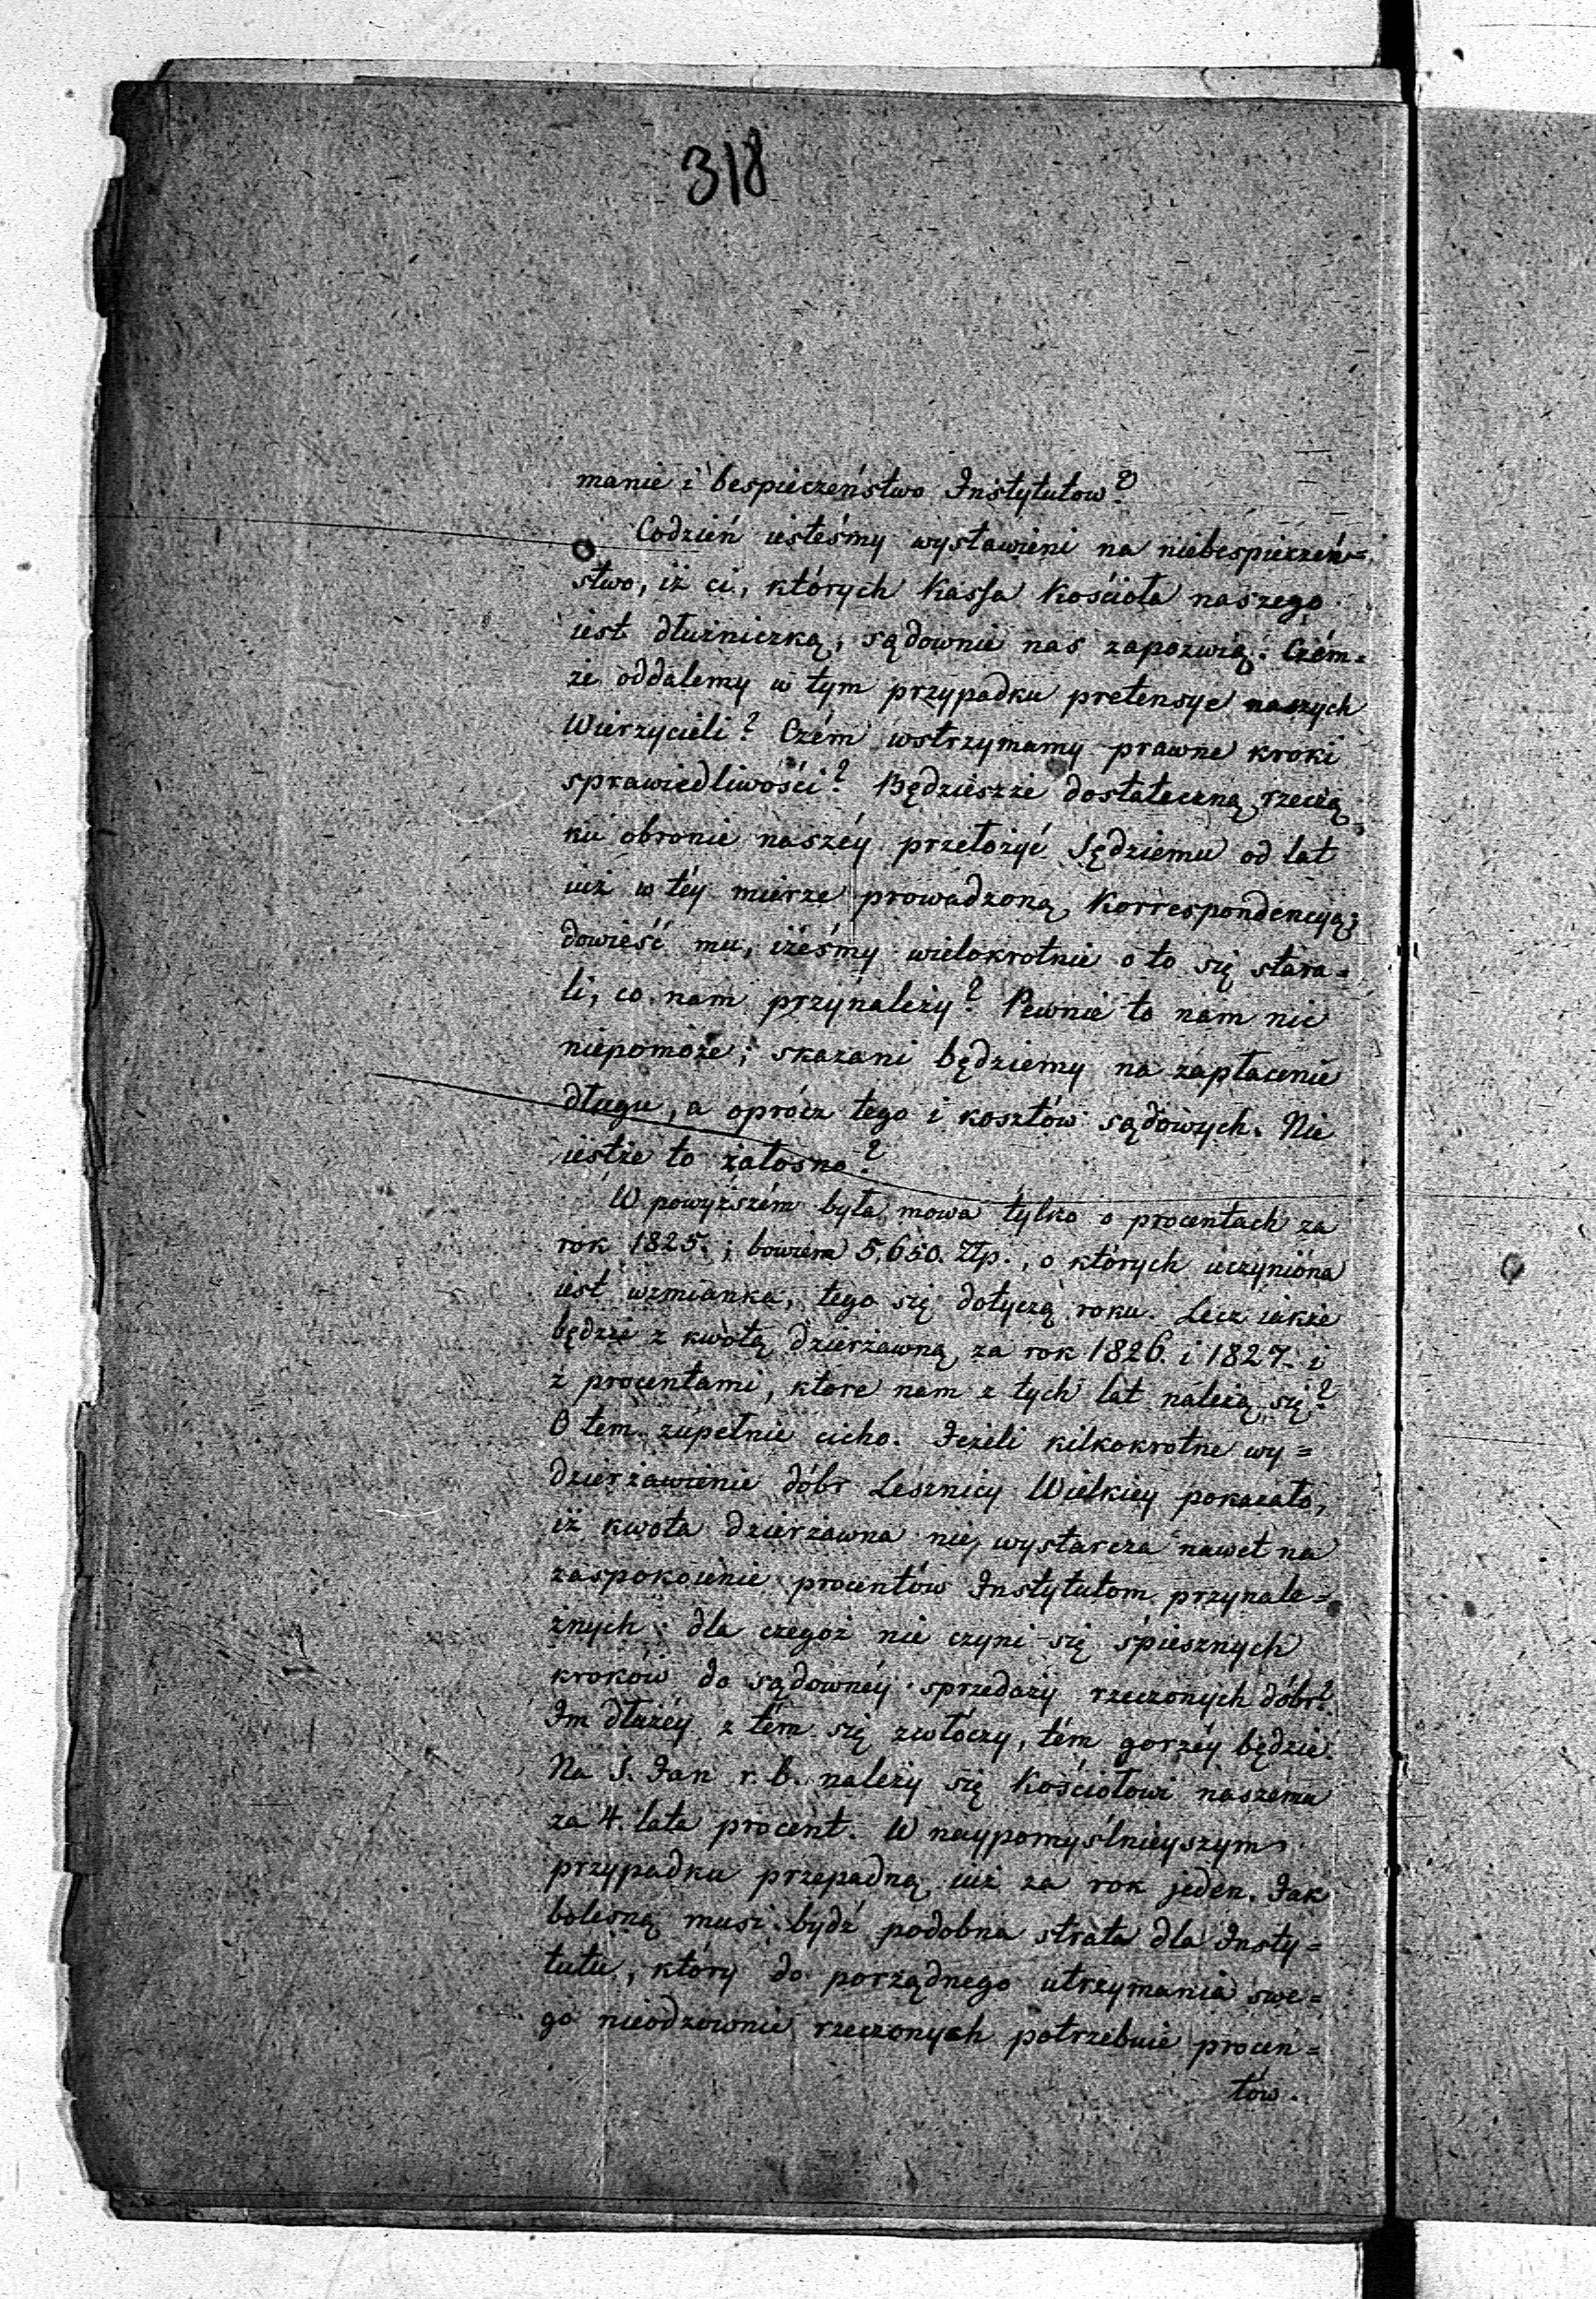 318
manie i bespieczeństwo Instytutow?
Codzień iesteśmy wystawieni na niebespieczeń=
stwo, iż ci, których Kassa Kościoła naszego
iest dłużniczką, sądownie nas zapozwią. Czém=
że oddalemy w tym przypadku pretensye naszych
Wierzycieli? Czém wstrzymamy prawne kroki
sprawiedliwości? Będzieszże dostateczną rzeczą
ku obronie naszéy przełożyć Sędziemu od lat
iuż w téy mierze prowadzoną Korrespondencyą;
dowieść mu, iżeśmy wielokrotnie o to się stara=
li, co nam przynależy? Pewnie to nam nic
niepomoże; skazani będziemy na zapłacenie
długu, a oprócz tego i kosztów sądowych. Nie
iestże to żałosno?
W powyższém była mowa tylko o procentach za
rok 1825.; bowiem 5,650. Złp., o których uczyniona
iest wzmianka, tego się dotyczą roku. Lecz iakże
będzie z kwotą dzierżawną za rok 1826. i 1827. i
z procentami, które nam z tych lat należą się?
O tem zupełnie cicho. Jeżeli kilkokrotne wy=
dzierżawienie dóbr Lesznicy Wielkiey pokazało,
iż kwota dzierżawna nie wystarcza nawet na
zaspokoienie procentów Instytutom przynale=
żnych; dla czegoż nie czyni się śpiesznych
kroków do sądownéy sprzedaży rzeczonych dóbr?
Im dłużéy z tém się zwłóczy, tém gorzéy będzie.
Na S. Jan r. b. należy się Kościołowi naszemu
za 4. lata procent. W naypomyślnieyszym
przypadku przepadną iuż za rok jeden. Jak
bolesną musi bydź podobna strata dla Insty=
tutu, który do porządnego utrzymania swe=
go nieodzownie rzeczonych potrzebuie procen=
tów.